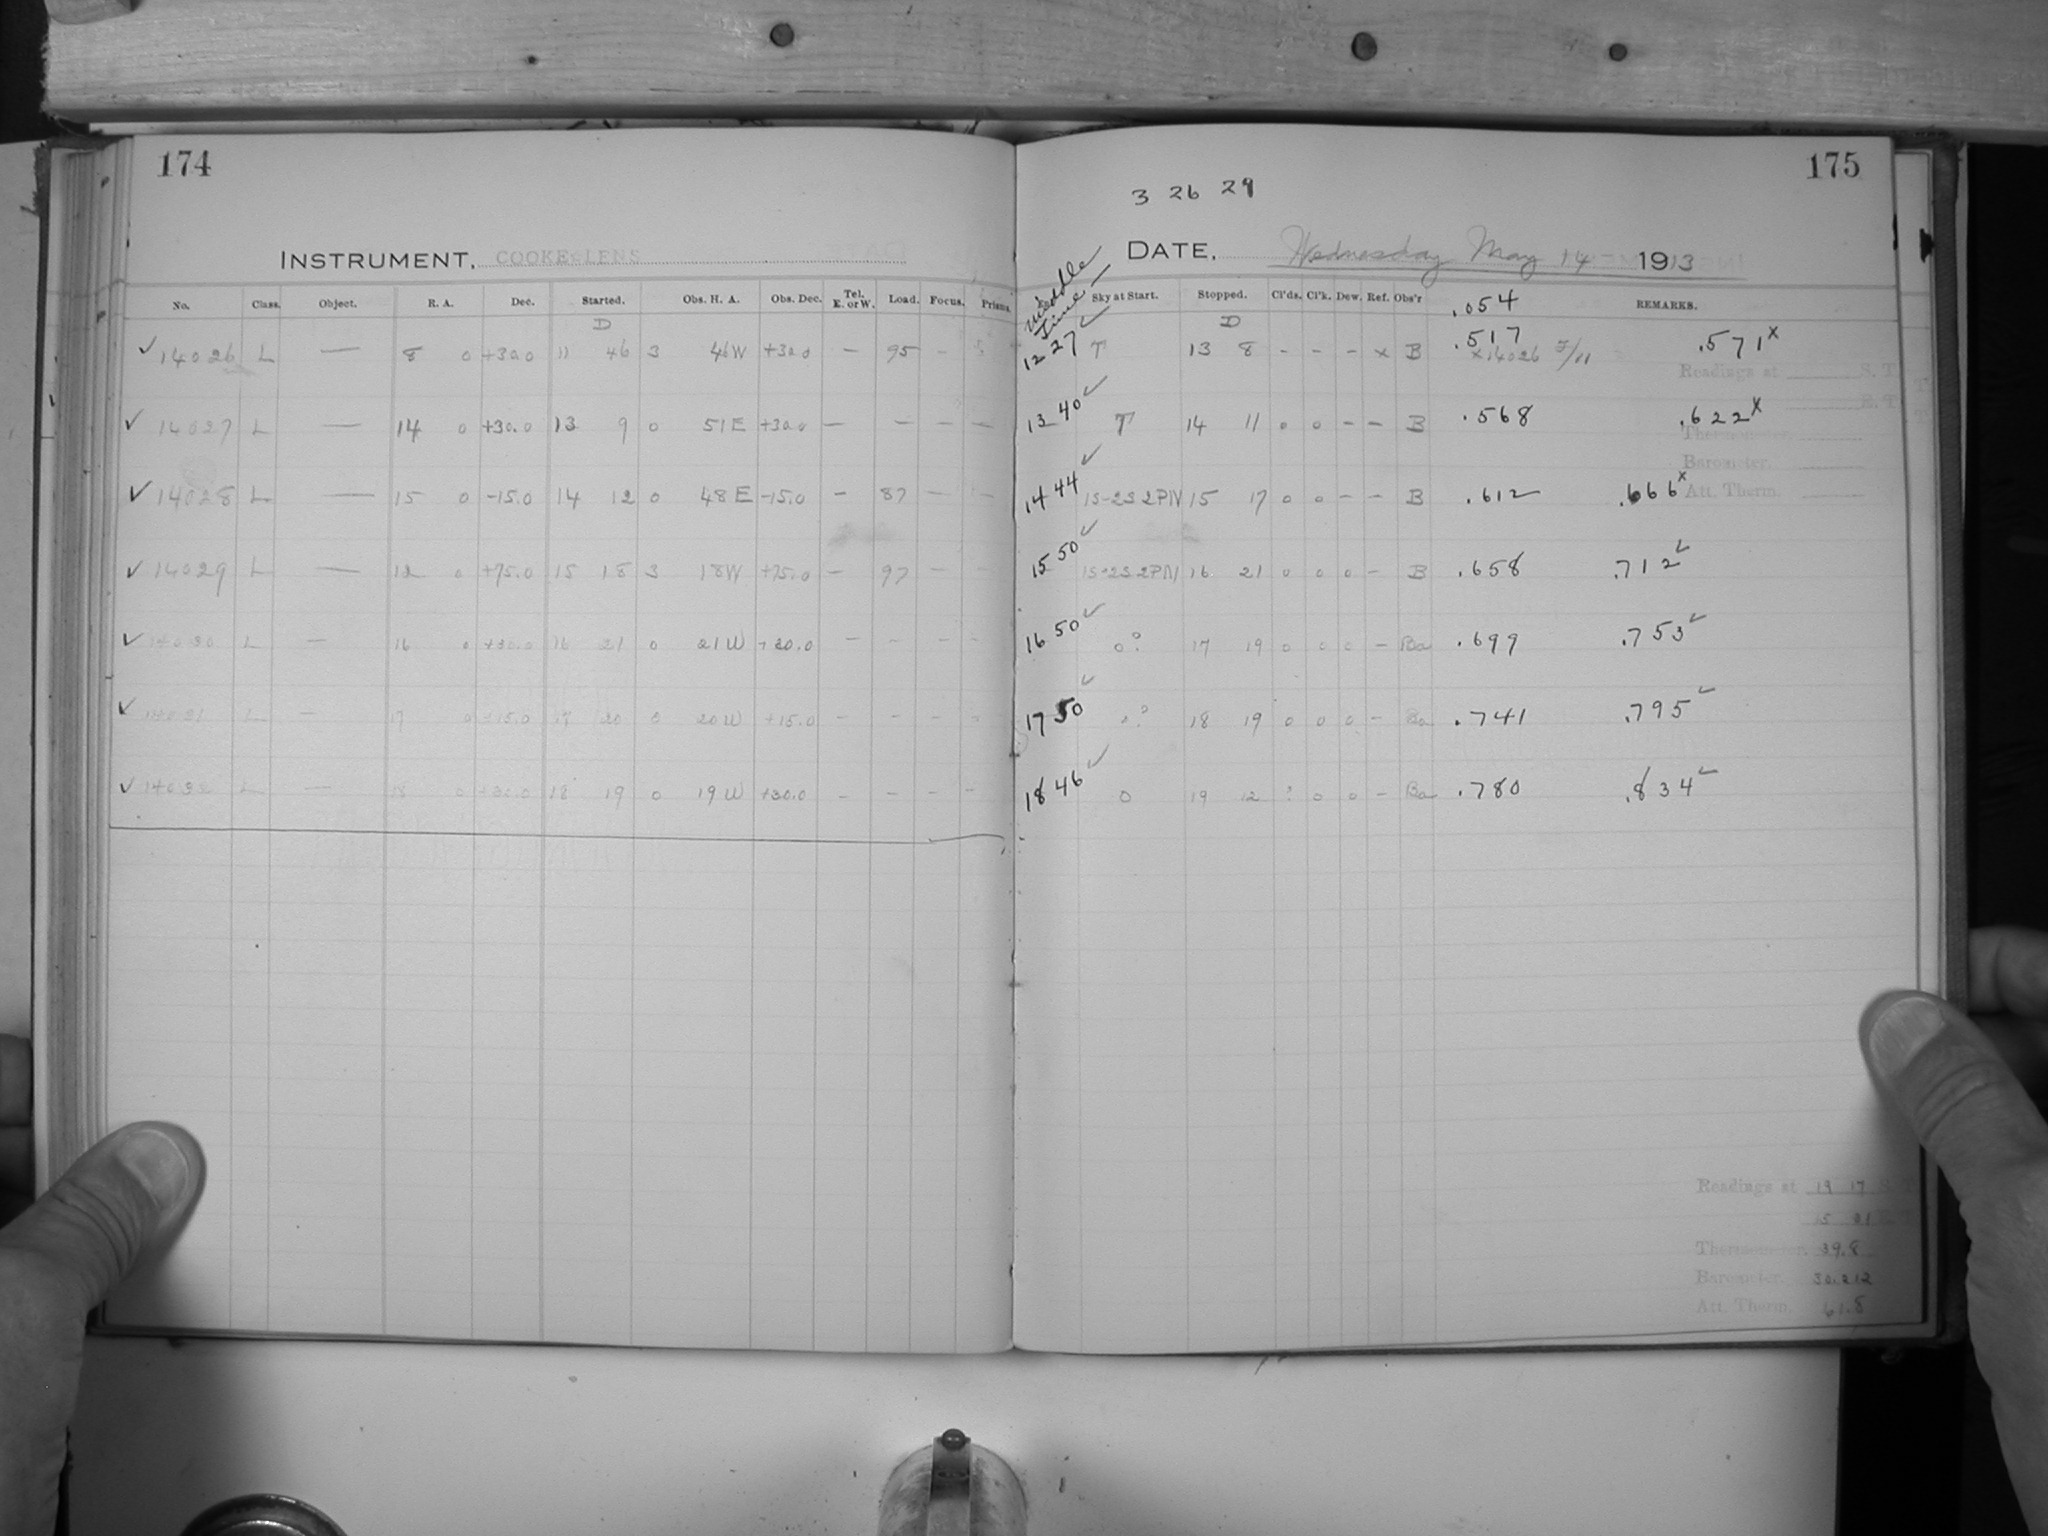 174
INSTRUMENT, COOKE LENS
No. Class. Object. R. A. Dec. Started. Obs. H. A. Obs. Dec. Tel. E. or W. Load. Focus. Prisms.
D
✓ 14026 L — 8 0 +30.0 11 46 3 46W +30.0 — 95 -
✓ 14027 L — 14 0 +30.0 13 9 0 51E +30.0 — — — —
✓ 14028 L — 15 0 -15.0 14 12 0 48E -15.0 — 87 — -
✓ 14029 L — 12 0 +75.0 15 18 3 18W +75.0 — 97 - -
✓ 14030 L — 16 0 +30.0 16 21 0 21W +30.0 - - - -
✓ 14031 L — 17 0 +15.0 17 20 0 20W +15.0 - - - -
✓ 14032 L — 18 0 +30.0 18 19 0 19W +30.0 - - - -
175
3 26 29
DATE, Wednesday May 14 1913
Middle Time Sky at Start. Stopped. Cl'ds. Cl'k. Dew. Ref. Obs'r .054 REMARKS.
D
12 27 ✓ T 13 8 - - - x B .517 .571 x
x14026 5/11
Readings at S. T.
13 40 ✓ T 14 11 0 0 - - B .568 .622 x
Thermometer.
Barometer.
14 44 ✓ 15-2S 2PN 15 17 0 0 - - B .612 .666 x
Att. Therm.
15 50 ✓ 15-2S 2PN 16 21 0 0 0 - B .658 .712 ✓
16 50 ✓ 0? 17 19 0 0 0 - Ba .699 .753 ✓
17 50 ✓ 0? 18 19 0 0 0 - Ba .741 .795 ✓
18 46 ✓ 0 19 12 ? 0 0 - Ba .780 .834 ✓
Readings at 19 17 S. T.
Thermometer. 39.8
Barometer. 30.212
Att. Therm. 61.8